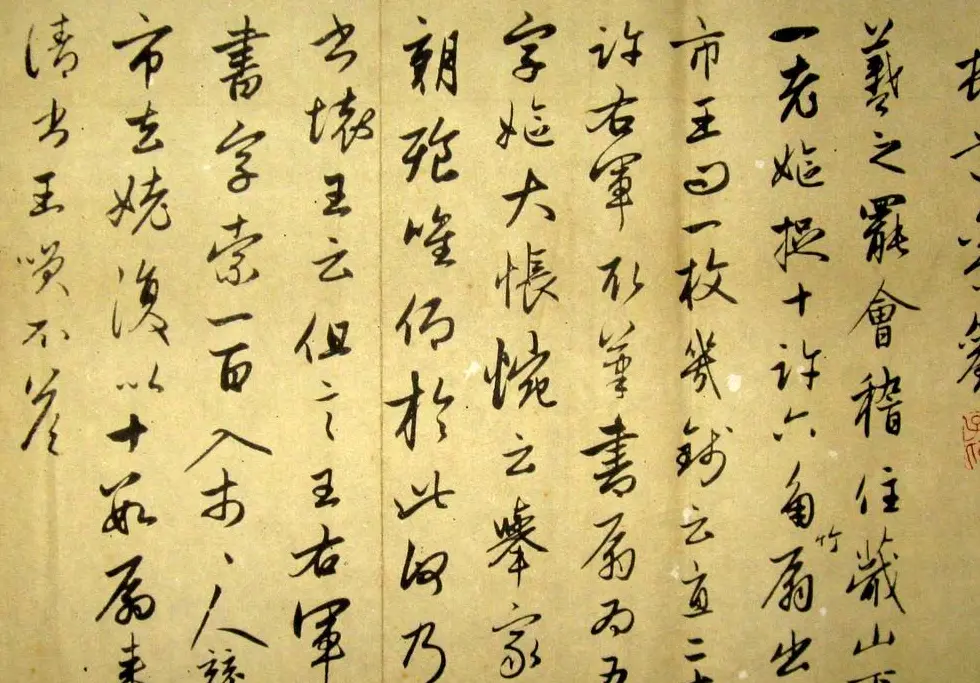 羲之罷會稽住蕺山下
一老嫗捉十許六角竹扇出
市王問一枚幾錢云直二十
許右軍取筆書扇為五
字嫗大悵惋云舉家
朝飡唯仰於此何乃
書壞王云但言王右軍
書字索一百入市、人競
市去姥復以十數扇来
請書王笑不答